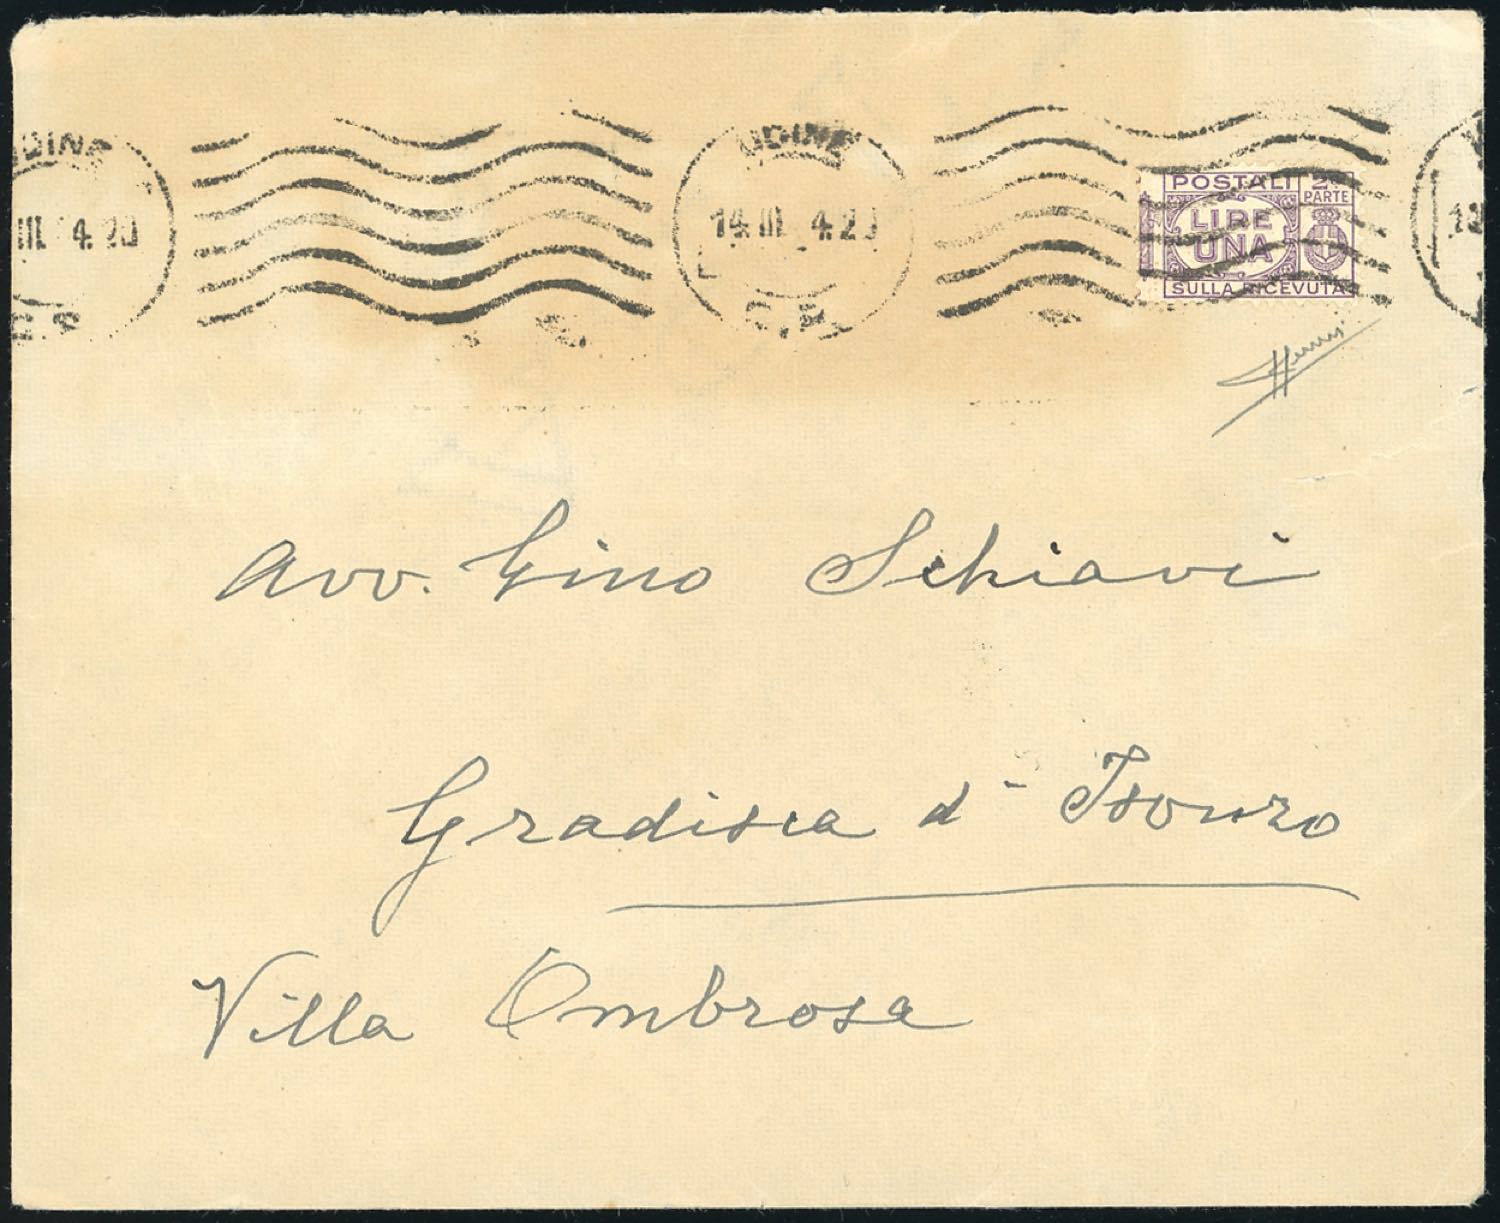 UDINE
III 4.20
UDINE
14 III 4.20
C.P.
POSTALI 2ª
PARTE
LIRE
UNA
SULLA RICEVUTA
Avv. Gino Schiavi
Gradisca d' Isonzo
Villa Ombrosa